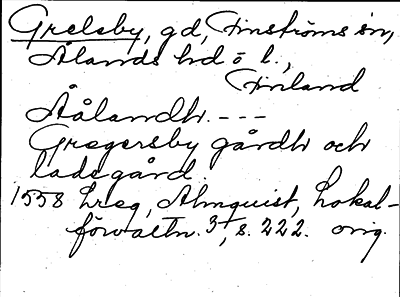 Grelsby, gd, Finströms sn,
Ålands hd o l.,
Finland
Åålandh. ---
Gregersby gårdh och
ladegård
1558 hreg, Almquist, Lokal-
förvaltn. 3, s. 222. orig.